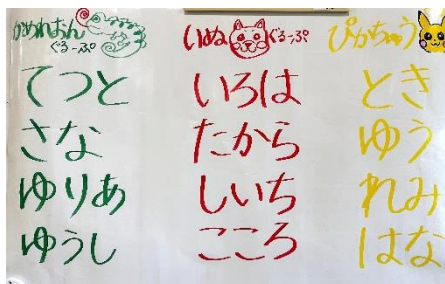 かめれおん
ぐるーぷ
てつと
さな
ゆりあ
ゆうし
いぬ ぐるーぷ
いろは
たから
しいち
こころ
ぴかちゅう
とき
ゆう
れみ
はな